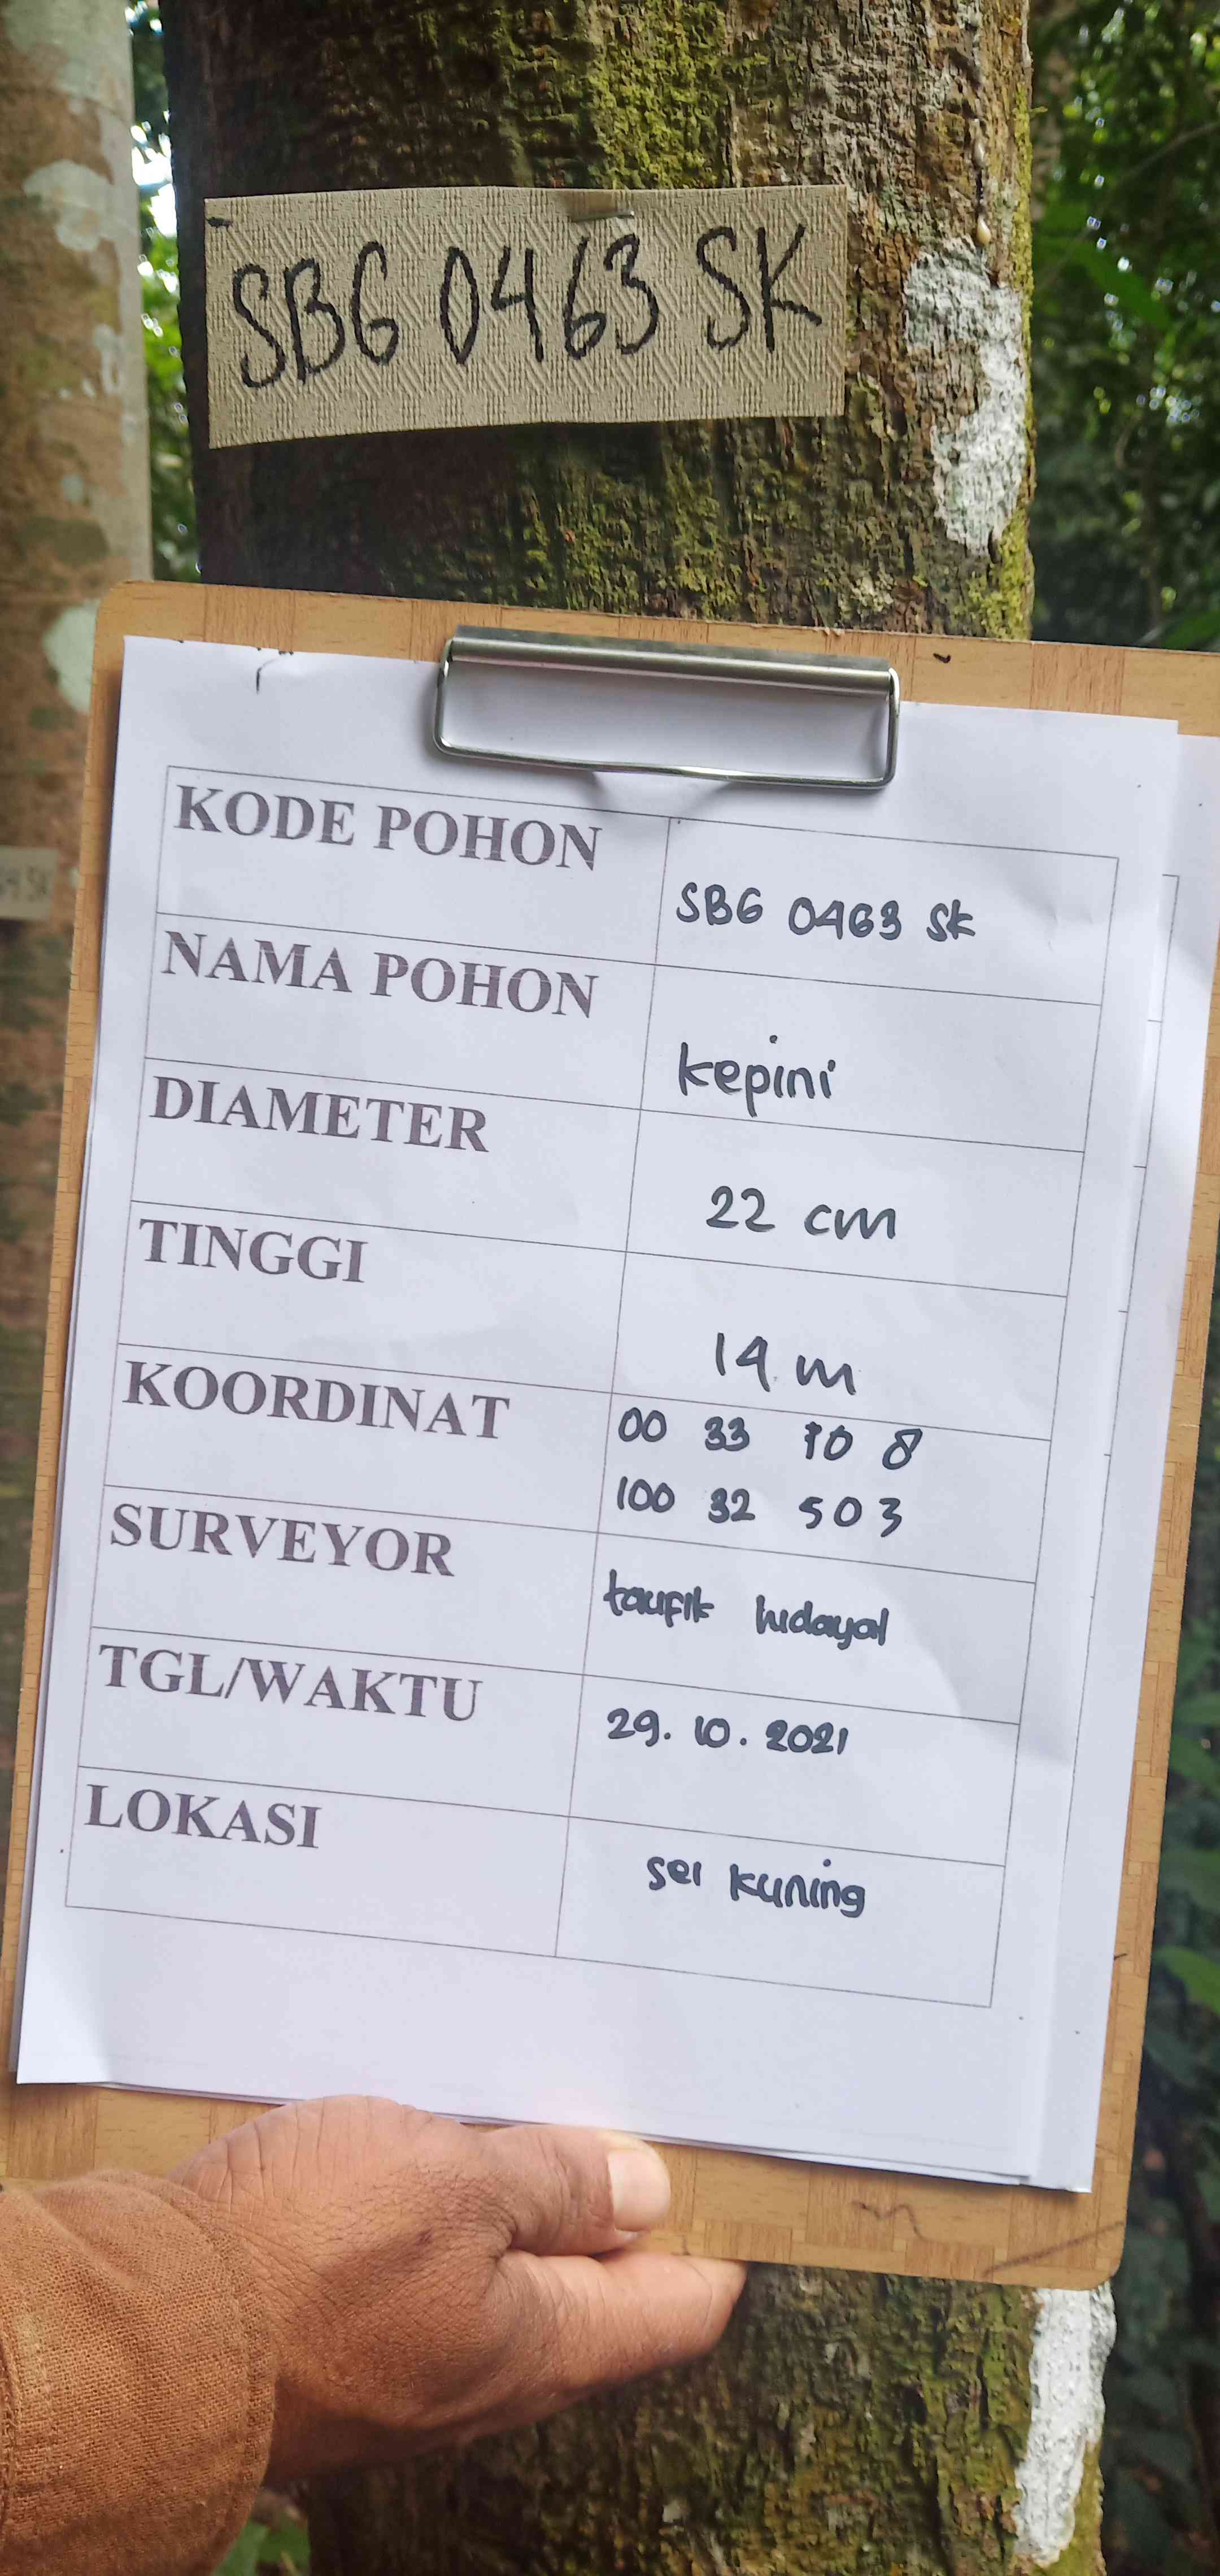 SBG 0463 SK
KODE POHON
SBG 0463 SK
NAMA POHON
kepini
DIAMETER
22 cm
TINGGI
14 m
KOORDINAT
00 33 708
100 32 503
SURVEYOR
taufik hidayat
TGL/WAKTU
29. 10. 2021
LOKASI
sei kuning